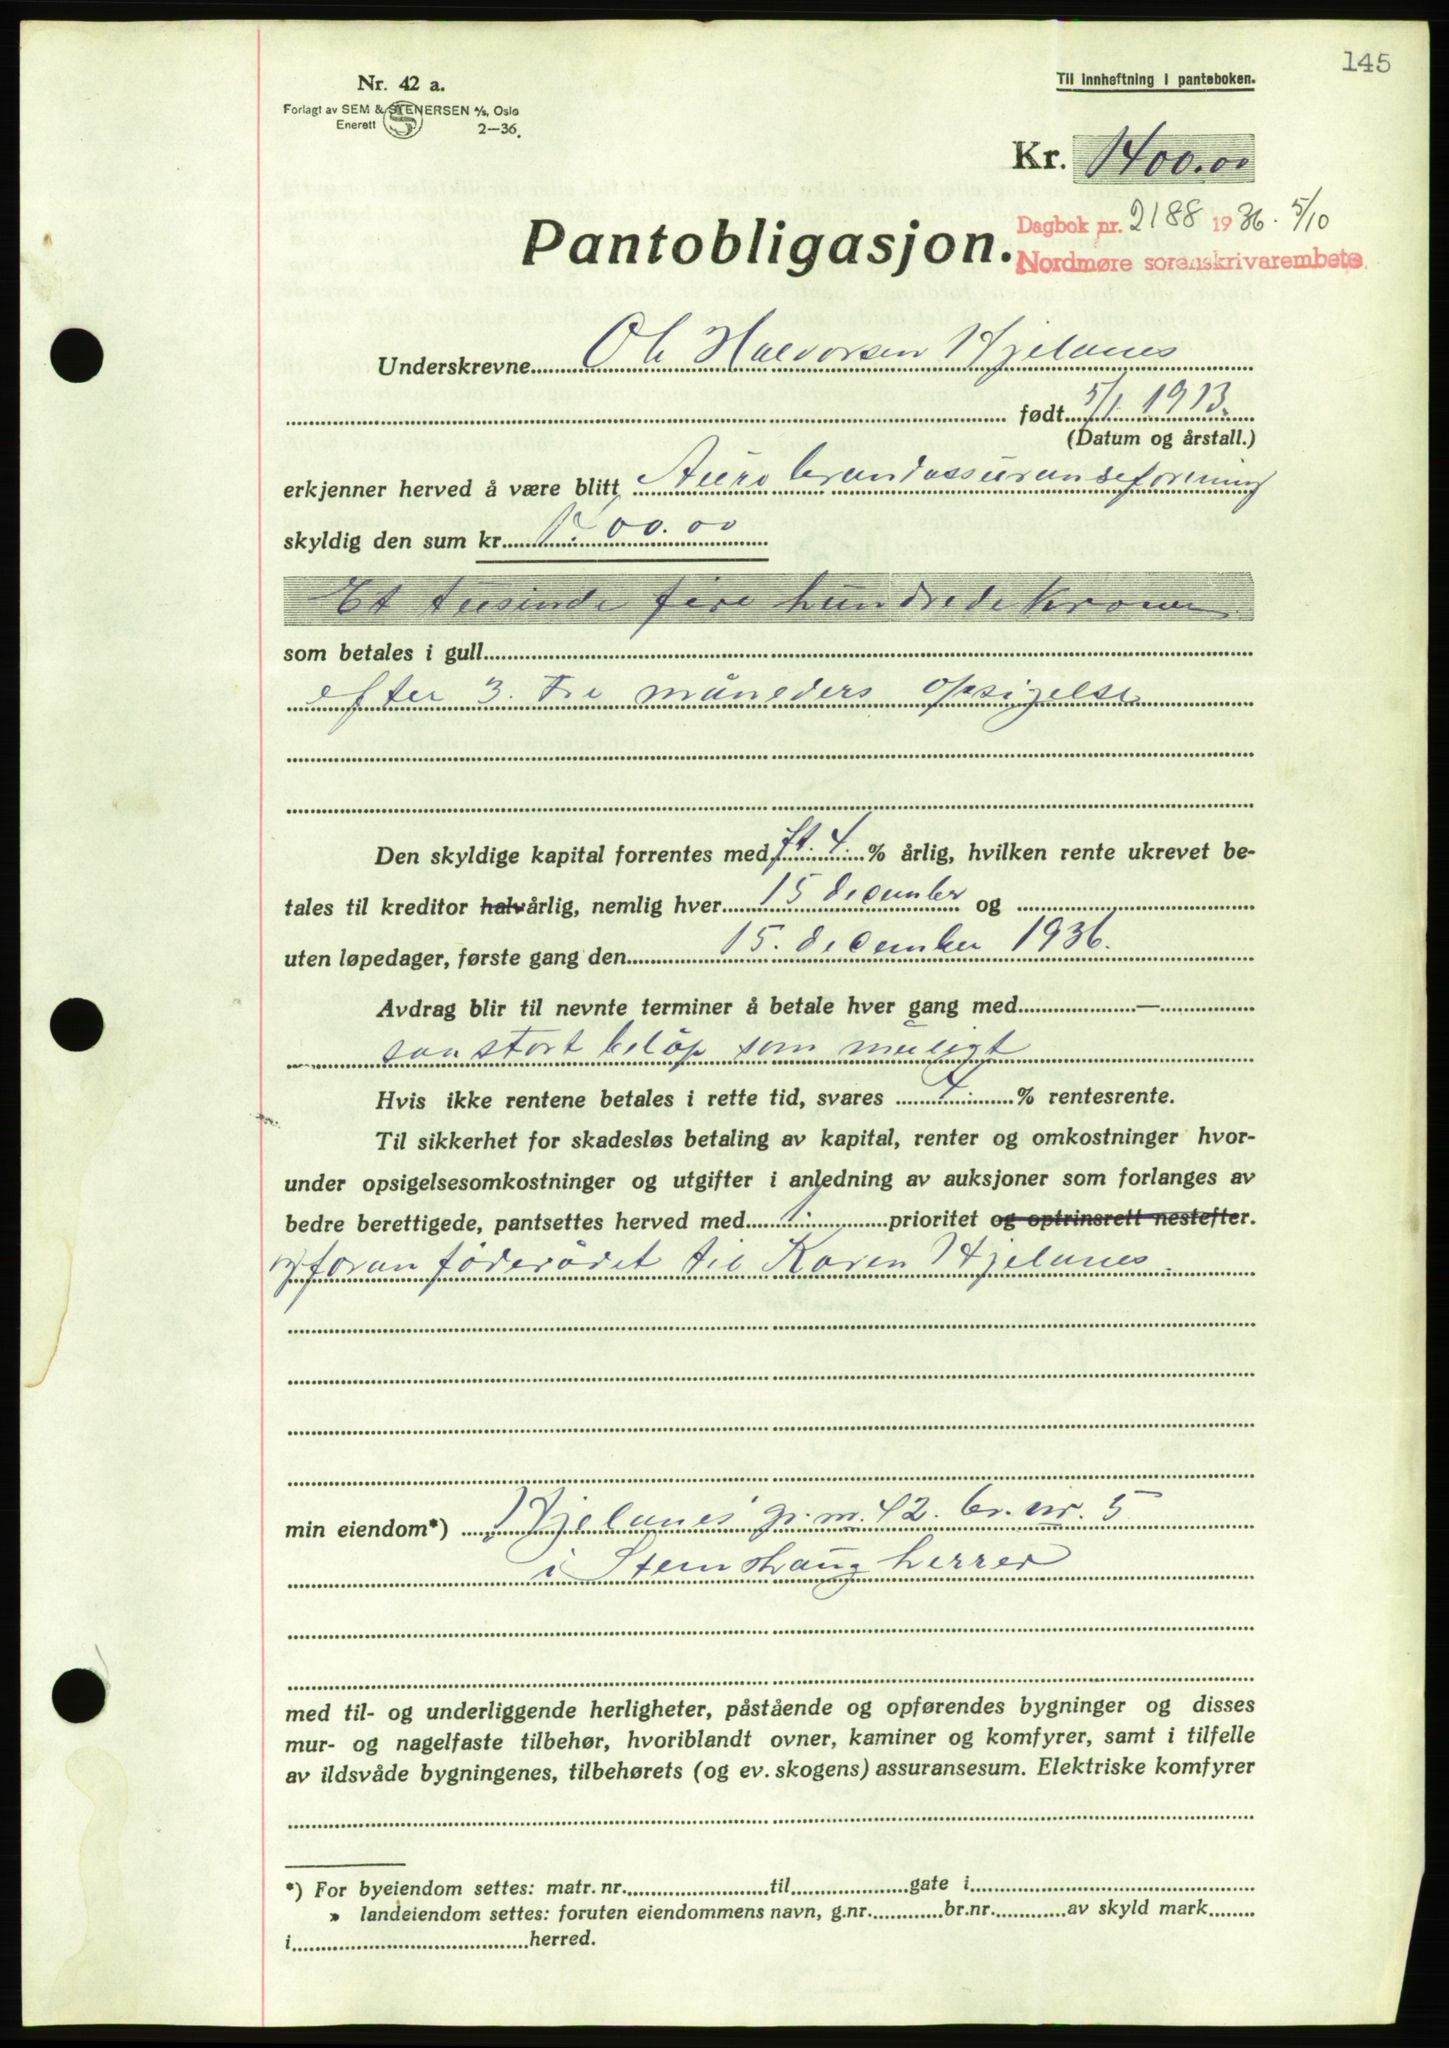 145
Nr. 42 a.
Forlagt av SEM & STENERSEN A/S, Oslo
Enerett 2—36.
Til innheftning i panteboken.
Kr. 1400.00
Pantobligasjon.
Dagbok nr. 2188 1936. 5/10
Nordmøre sorenskrivarembete
Underskrevne Ole Halvorsen Hjelanes
født 5/1. 1913.
(Datum og årstall.)
erkjenner herved å være blitt Aure brandassuranseforening
skyldig den sum kr. 00.00
Et tusinde fire hundrede kroner
som betales i gull
efter 3. tre måneders opsigelse
Den skyldige kapital forrentes med 4 % årlig, hvilken rente ukrevet be-
tales til kreditor halvårlig, nemlig hver 15 december og
uten løpedager, første gang den 15. december 1936.
Avdrag blir til nevnte terminer å betale hver gang med —
saa stort beløp som muligt
Hvis ikke rentene betales i rette tid, svares 4 % rentesrente.
Til sikkerhet for skadesløs betaling av kapital, renter og omkostninger hvor-
under opsigelsesomkostninger og utgifter i anledning av auksjoner som forlanges av
bedre berettigede, pantsettes herved med 1. prioritet og optrinsrett nestefter.
foran føderådet til Karen Hjelanes.
min eiendom*) „Hjelanes" gr. nr. 42. br. nr. 5
i Stemshaug herred
med til- og underliggende herligheter, påstående og opførendes bygninger og disses
mur- og nagelfaste tilbehør, hvoriblandt ovner, kaminer og komfyrer, samt i tilfelle
av ildsvåde bygningenes, tilbehørets (og ev. skogens) assuransesum. Elektriske komfyrer
*) For byeiendom settes: matr. nr. til gate i
» landeiendom settes: foruten eiendommens navn, g.nr. br.nr. av skyld mark
i herred.